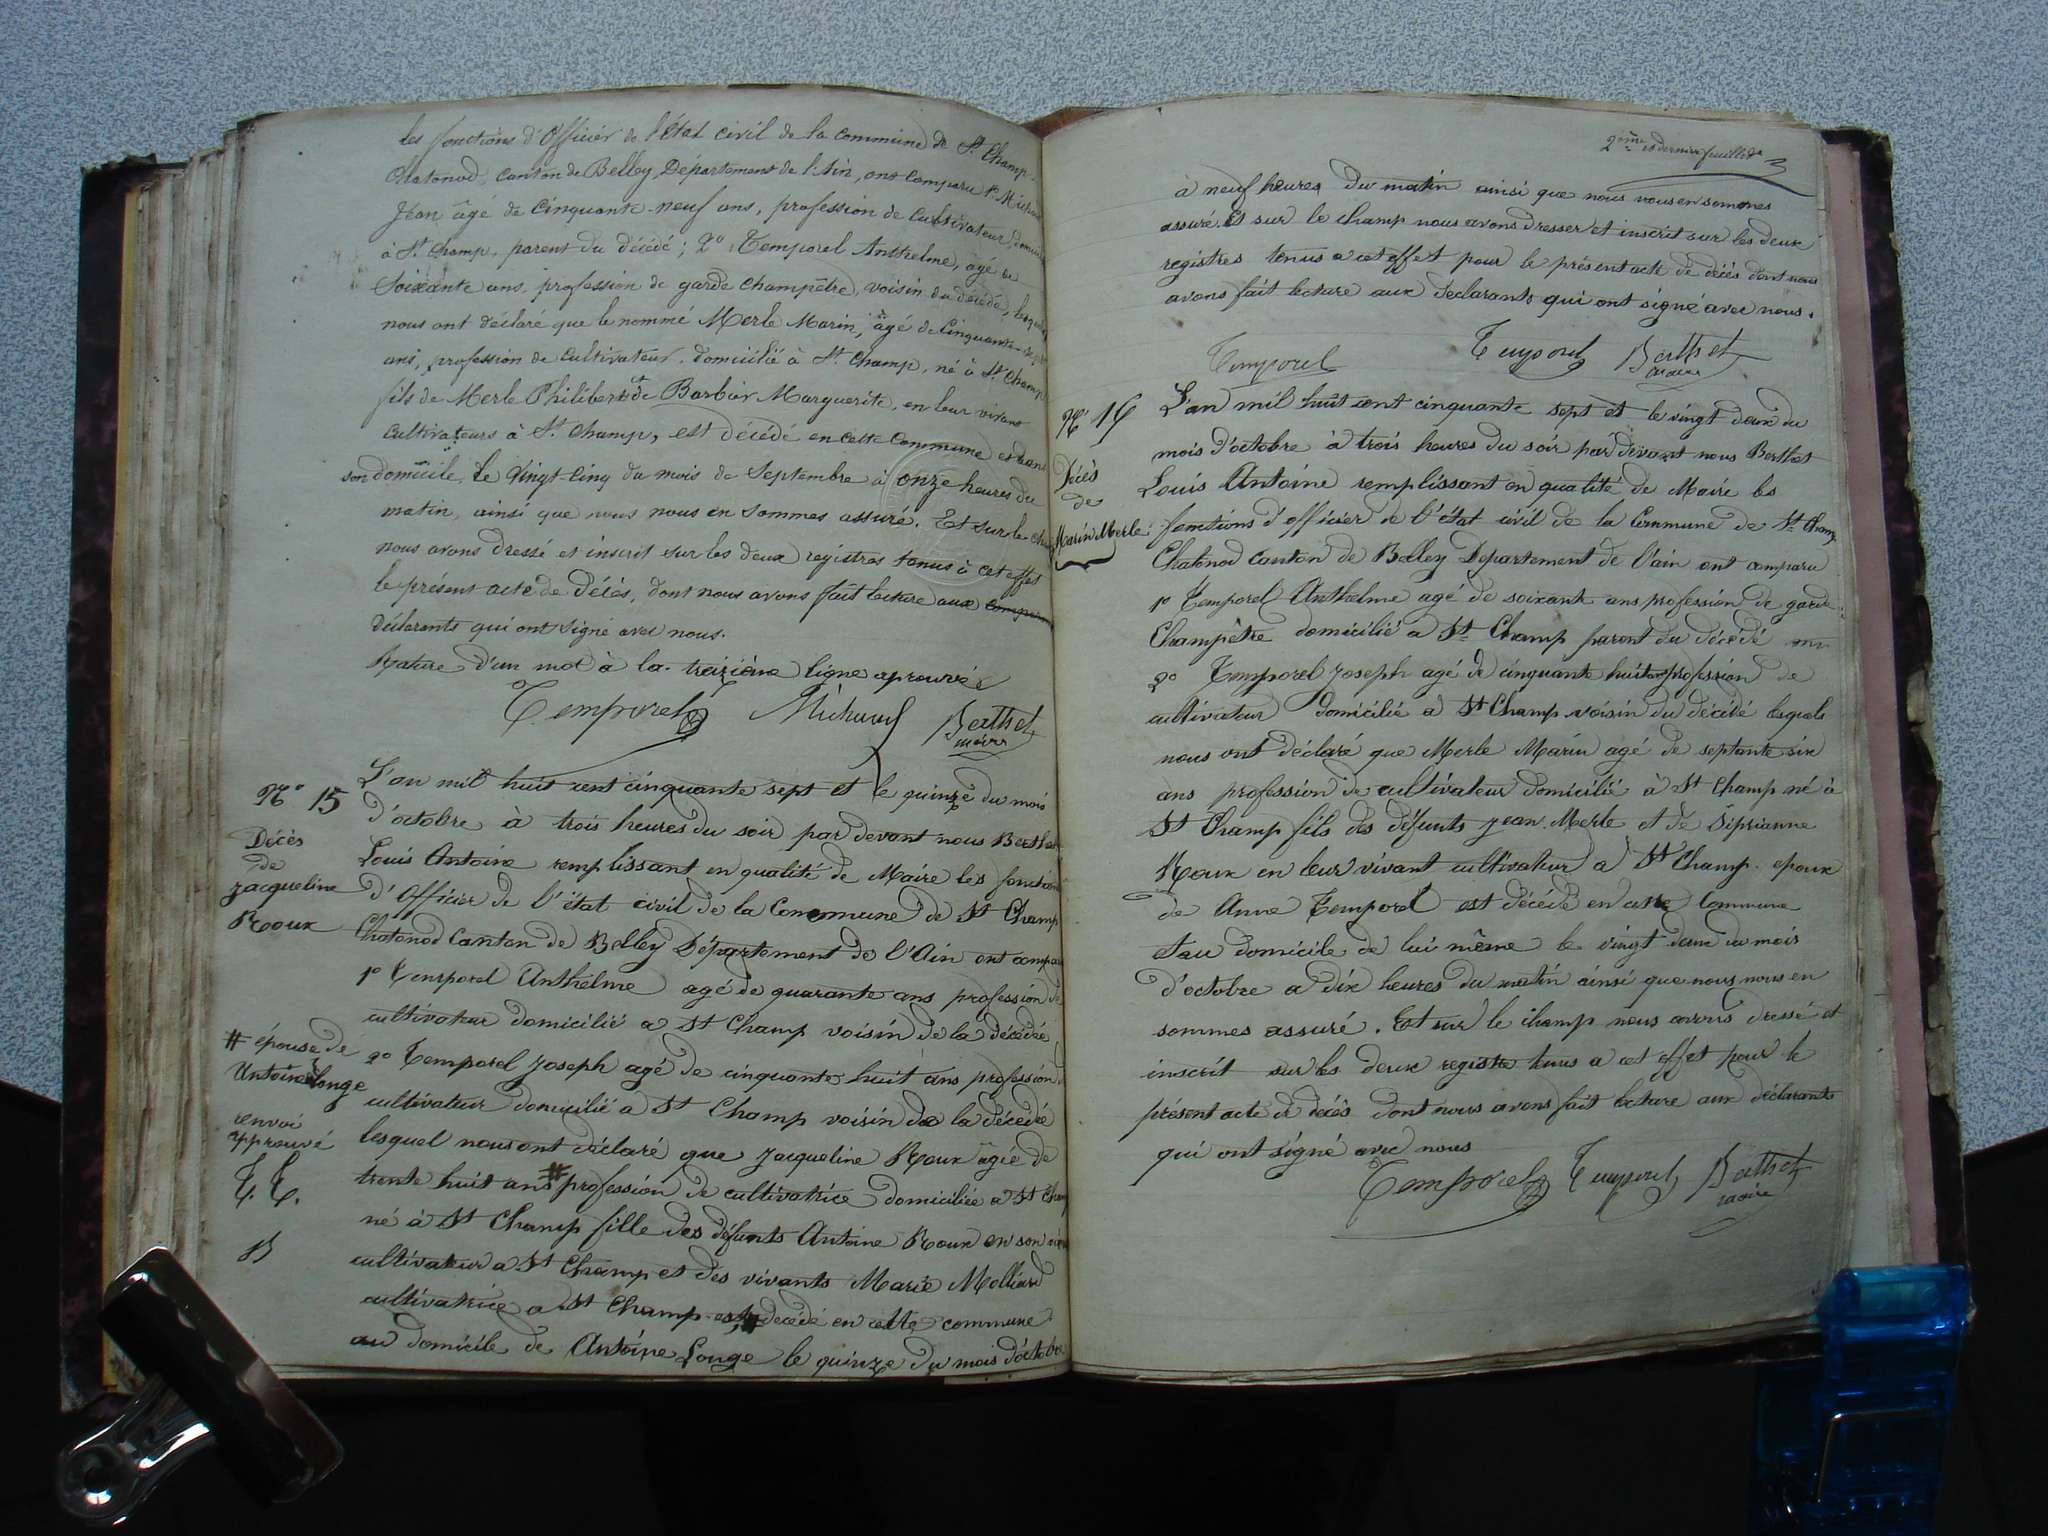 les fonctions d'Officier de l'État civil de la commune de St Champ-
Chatonod, Canton de Belley, Département de l'Ain, ont comparu 1° Michaud
Jean âgé de cinquante-neuf ans, profession de cultivateur,
à St Champ, parent du décédé; 2° Temporel Anthelme, âgé de
soixante ans, profession de garde champêtre, voisin du décédé, lesquels
nous ont déclaré que le nommé Merle Marin, âgé de cinquante-sept
ans, profession de cultivateur, domicilié à St Champ, né à St Champ
fils de Merle Philibert et de Barbier Marguerite, en leur vivant
cultivateurs à St Champ, est décédé en cette commune et dans
son domicile, le vingt-cinq du mois de Septembre à onze heures du
matin, ainsi que nous nous en sommes assuré. Et sur le champ
nous avons dressé et inscrit sur les deux registres tenus à cet effet
le présent acte de décès, dont nous avons fait lecture aux
déclarants qui ont signé avec nous.
Rature d'un mot à la treizième ligne aprouvée
Temporel Michaud Berthet
maire
N° 15
Décès
de
Jacqueline
Roux
L'an mil huit cent cinquante sept et le quinze du mois
d'octobre à trois heures du soir par devant nous Berthet
Louis Antoine remplissant en qualité de Maire les fonctions
d'Officier de l'état civil de la Commune de St Champ
Chatonod Canton de Belley Département de l'Ain ont comparu
1° Temporel Anthelme agé de quarante ans profession de
cultivateur domicilié a St Champ voisin de la décédée
2° Temporel Joseph agé de cinquante huit ans profession de
cultivateur domicilié a St Champ voisin de la décédée
lesquel nous ont déclaré que Jacqueline Roux agée de
trente huit ans # profession de cultivatrice domiciliée a St Champ
né à St Champ fille des défunts Antoine Roux en son vivant
cultivateur a St Champ et des vivants Marie Molliard
cultivatrice a St Champ est décédé en cette commune
au domicile de Antoine Longe le quinze du mois d'octobre
# épouse de
Antoine Longe
renvoi
approuvé
T. T.
B
2ème et dernier feuillet
à neuf heures du matin ainsi que nous nous en sommes
assuré. Et sur le champ nous avons dresser et inscrit sur les deux
registres tenus a cet effet pour le présent acte de décès dont nous
avons fait lecture aux declarants qui ont signé avec nous.
Temporel Temporel Berthet
maire
N° 16
Décès
de
Marin Merle
L'an mil huit cent cinquante sept et le vingt deux du
mois d'octobre à trois heures du soir par devant nous Berthet
Louis Antoine remplissant en qualité de Maire les
fonctions d'officier de l'état civil de la Commune de St Champ
Chatonod Canton de Belley Departement de l'ain ont comparu
1° Temporel Anthelme agé de soixante ans profession de garde
Champêtre domicilié a St Champ parent du décédé
2° Temporel Joseph agé de cinquante huit ans profession de
cultivateur domicilié a St Champ voisin du décédé lesquels
nous ont déclaré que Merle Marin agé de septante six
ans profession de cultivateur domicilié à St Champ né à
St Champ fils des défunts Jean Merle et de Siprianne
Roux en leur vivant cultivateur a St Champ epoux
de Anne Temporel est décédé en cette Commune
et au domicile de lui même le vingt deux du mois
d'octobre a dix heures du matin ainsi que nous nous en
sommes assuré. Et sur le champ nous avons dressé et
inscrit sur les deux registre tenus a cet effet pour le
présent acte de décès dont nous avons fait lecture aux déclarants
qui ont signé avec nous
Temporel Temporel Berthet
maire